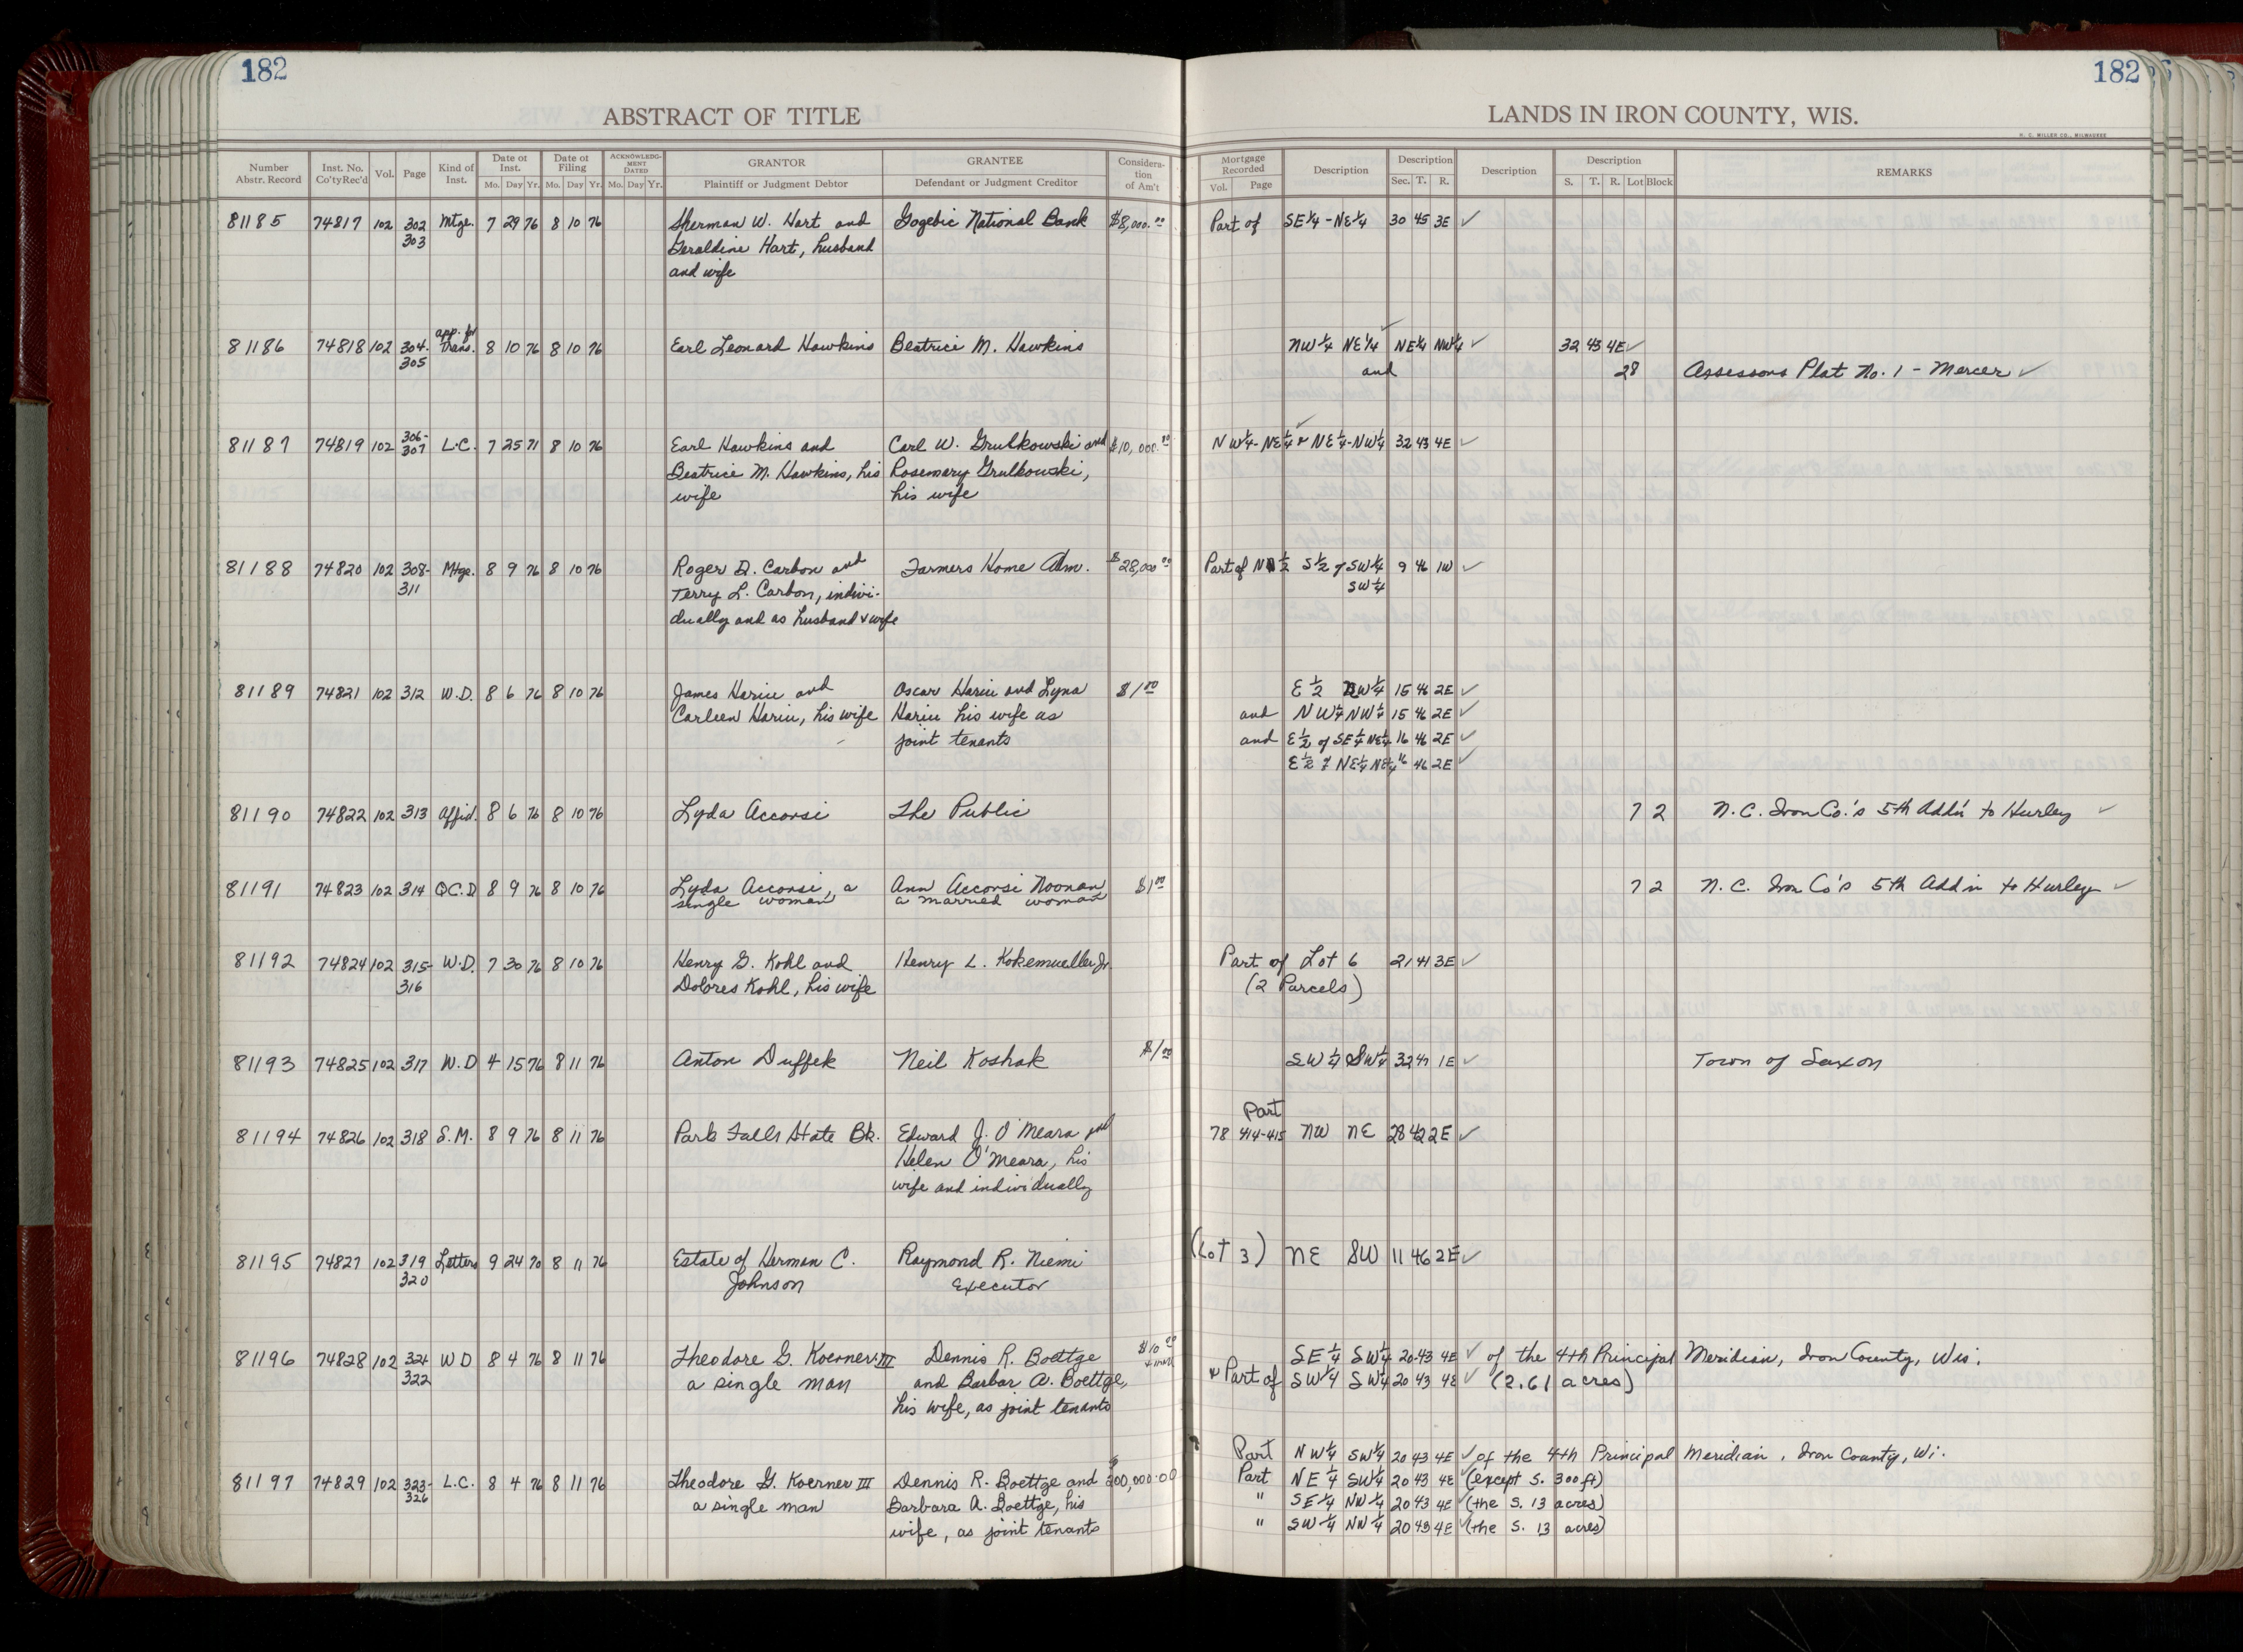 182
182
ABSTRACT OF TITLE
LANDS IN IRON COUNTY, WIS.
H. C. MILLER CO., MILWAUKEE
Number Abstr. Record Inst. No. Co'ty Rec'd Vol. Page Kind of Inst. Date of Inst. Mo. Day Yr. Date of Filing Mo. Day Yr. ACKNOWLEDGMENT DATED Mo. Day Yr. GRANTOR Plaintiff or Judgment Debtor GRANTEE Defendant or Judgment Creditor Consideration of Am't Mortgage Recorded Vol. Page Description Description Sec. T. R. Description Description S. T. R. Lot Block REMARKS
81185 74817 102 302 Mtge. 7 29 76 8 10 76 Sherman W. Hart and Gogebic National Bank $8,000.00 Part of SE 1/4 - NE 1/4 30 45 3E ✓
303 Geraldine Hart, husband
and wife
app. for
81186 74818 102 304- Trans. 8 10 76 8 10 76 Earl Leonard Hawkins Beatrice M. Hawkins NW 1/4 NE 1/4 ✓ NE 1/4 NW 1/4 ✓ 32 43 4E ✓
305 and 28 Assessors Plat No. 1 - Mercer ✓
81187 74819 102 306- L.C. 7 25 71 8 10 76 Earl Hawkins and Carl W. Grulkowski and $10,000.00 NW 1/4 - NE 1/4 ✓ & NE 1/4 - NW 1/4 32 43 4E ✓
307 Beatrice M. Hawkins, his Rosemary Grulkowski,
wife his wife
81188 74820 102 308- Mtge. 8 9 76 8 10 76 Roger D. Carbon and Farmers Home Adm. $28,000.00 Part of N 1/2 S 1/2 of SW 1/4 9 46 1W ✓
311 Terry L. Carbon, indivi- SW 1/4
dually and as husband & wife
81189 74821 102 312 W.D. 8 6 76 8 10 76 James Hariu and Oscar Hariu and Lyna $1.00 E 1/2 NW 1/4 15 46 2E ✓
Carleen Hariu, his wife Hariu his wife as and NW 1/4 NW 1/4 15 46 2E ✓
joint tenants and E 1/2 of SE 1/4 NE 1/4 16 46 2E ✓
E 1/2 of NE 1/4 NE 1/4 16 46 2E ✓
81190 74822 102 313 Affid. 8 6 76 8 10 76 Lyda Accorsi The Public 7 2 N.C. Iron Co.'s 5th Add'n to Hurley ✓
81191 74823 102 314 Q.C.D 8 9 76 8 10 76 Lyda Accorsi, a Ann Accorsi Noonan, $1.00 7 2 N.C. Iron Co's 5th Add'n to Hurley ✓
single woman a married woman
81192 74824 102 315- W.D. 7 30 76 8 10 76 Henry G. Kohl and Henry L. Kokemueller Jr. Part of Lot 6 21 41 3E ✓
316 Dolores Kohl, his wife (2 Parcels)
81193 74825 102 317 W.D 4 15 76 8 11 76 Anton Duffek Neil Koshak $1.00 SW 1/4 SW 1/4 32 47 1E ✓ Town of Saxon
Part
81194 74826 102 318 S.M. 8 9 76 8 11 76 Park Falls State Bk. Edward J. O'Meara and 78 414-415 NW NE 28 42 2E ✓
Helen O'Meara, his
wife and individually
81195 74827 102 319 Letters 9 24 70 8 11 76 Estate of Herman C. Raymond R. Niemi (Lot 3) NE SW 11 46 2E ✓
320 Johnson Executor
81196 74828 102 321 W D 8 4 76 8 11 76 Theodore G. Koerner III Dennis R. Boettge $10.00 SE 1/4 SW 1/4 20 43 4E ✓ of the 4th Principal Meridian, Iron County, Wis.
322 a single man and Barbar A. Boettge, & Part of SW 1/4 SW 1/4 20 43 4E ✓ (2.61 acres)
his wife, as joint tenants
Part NW 1/4 SW 1/4 20 43 4E ✓ of the 4th Principal Meridian, Iron County, Wi.
81197 74829 102 323- L.C. 8 4 76 8 11 76 Theodore G. Koerner III Dennis R. Boettge and $200,000.00 Part NE 1/4 SW 1/4 20 43 4E ✓ (except S. 300 ft)
326 a single man Barbara A. Boettge, his " SE 1/4 NW 1/4 20 43 4E ✓ (the S. 13 acres)
wife, as joint tenants " SW 1/4 NW 1/4 20 43 4E ✓ (the S. 13 acres)